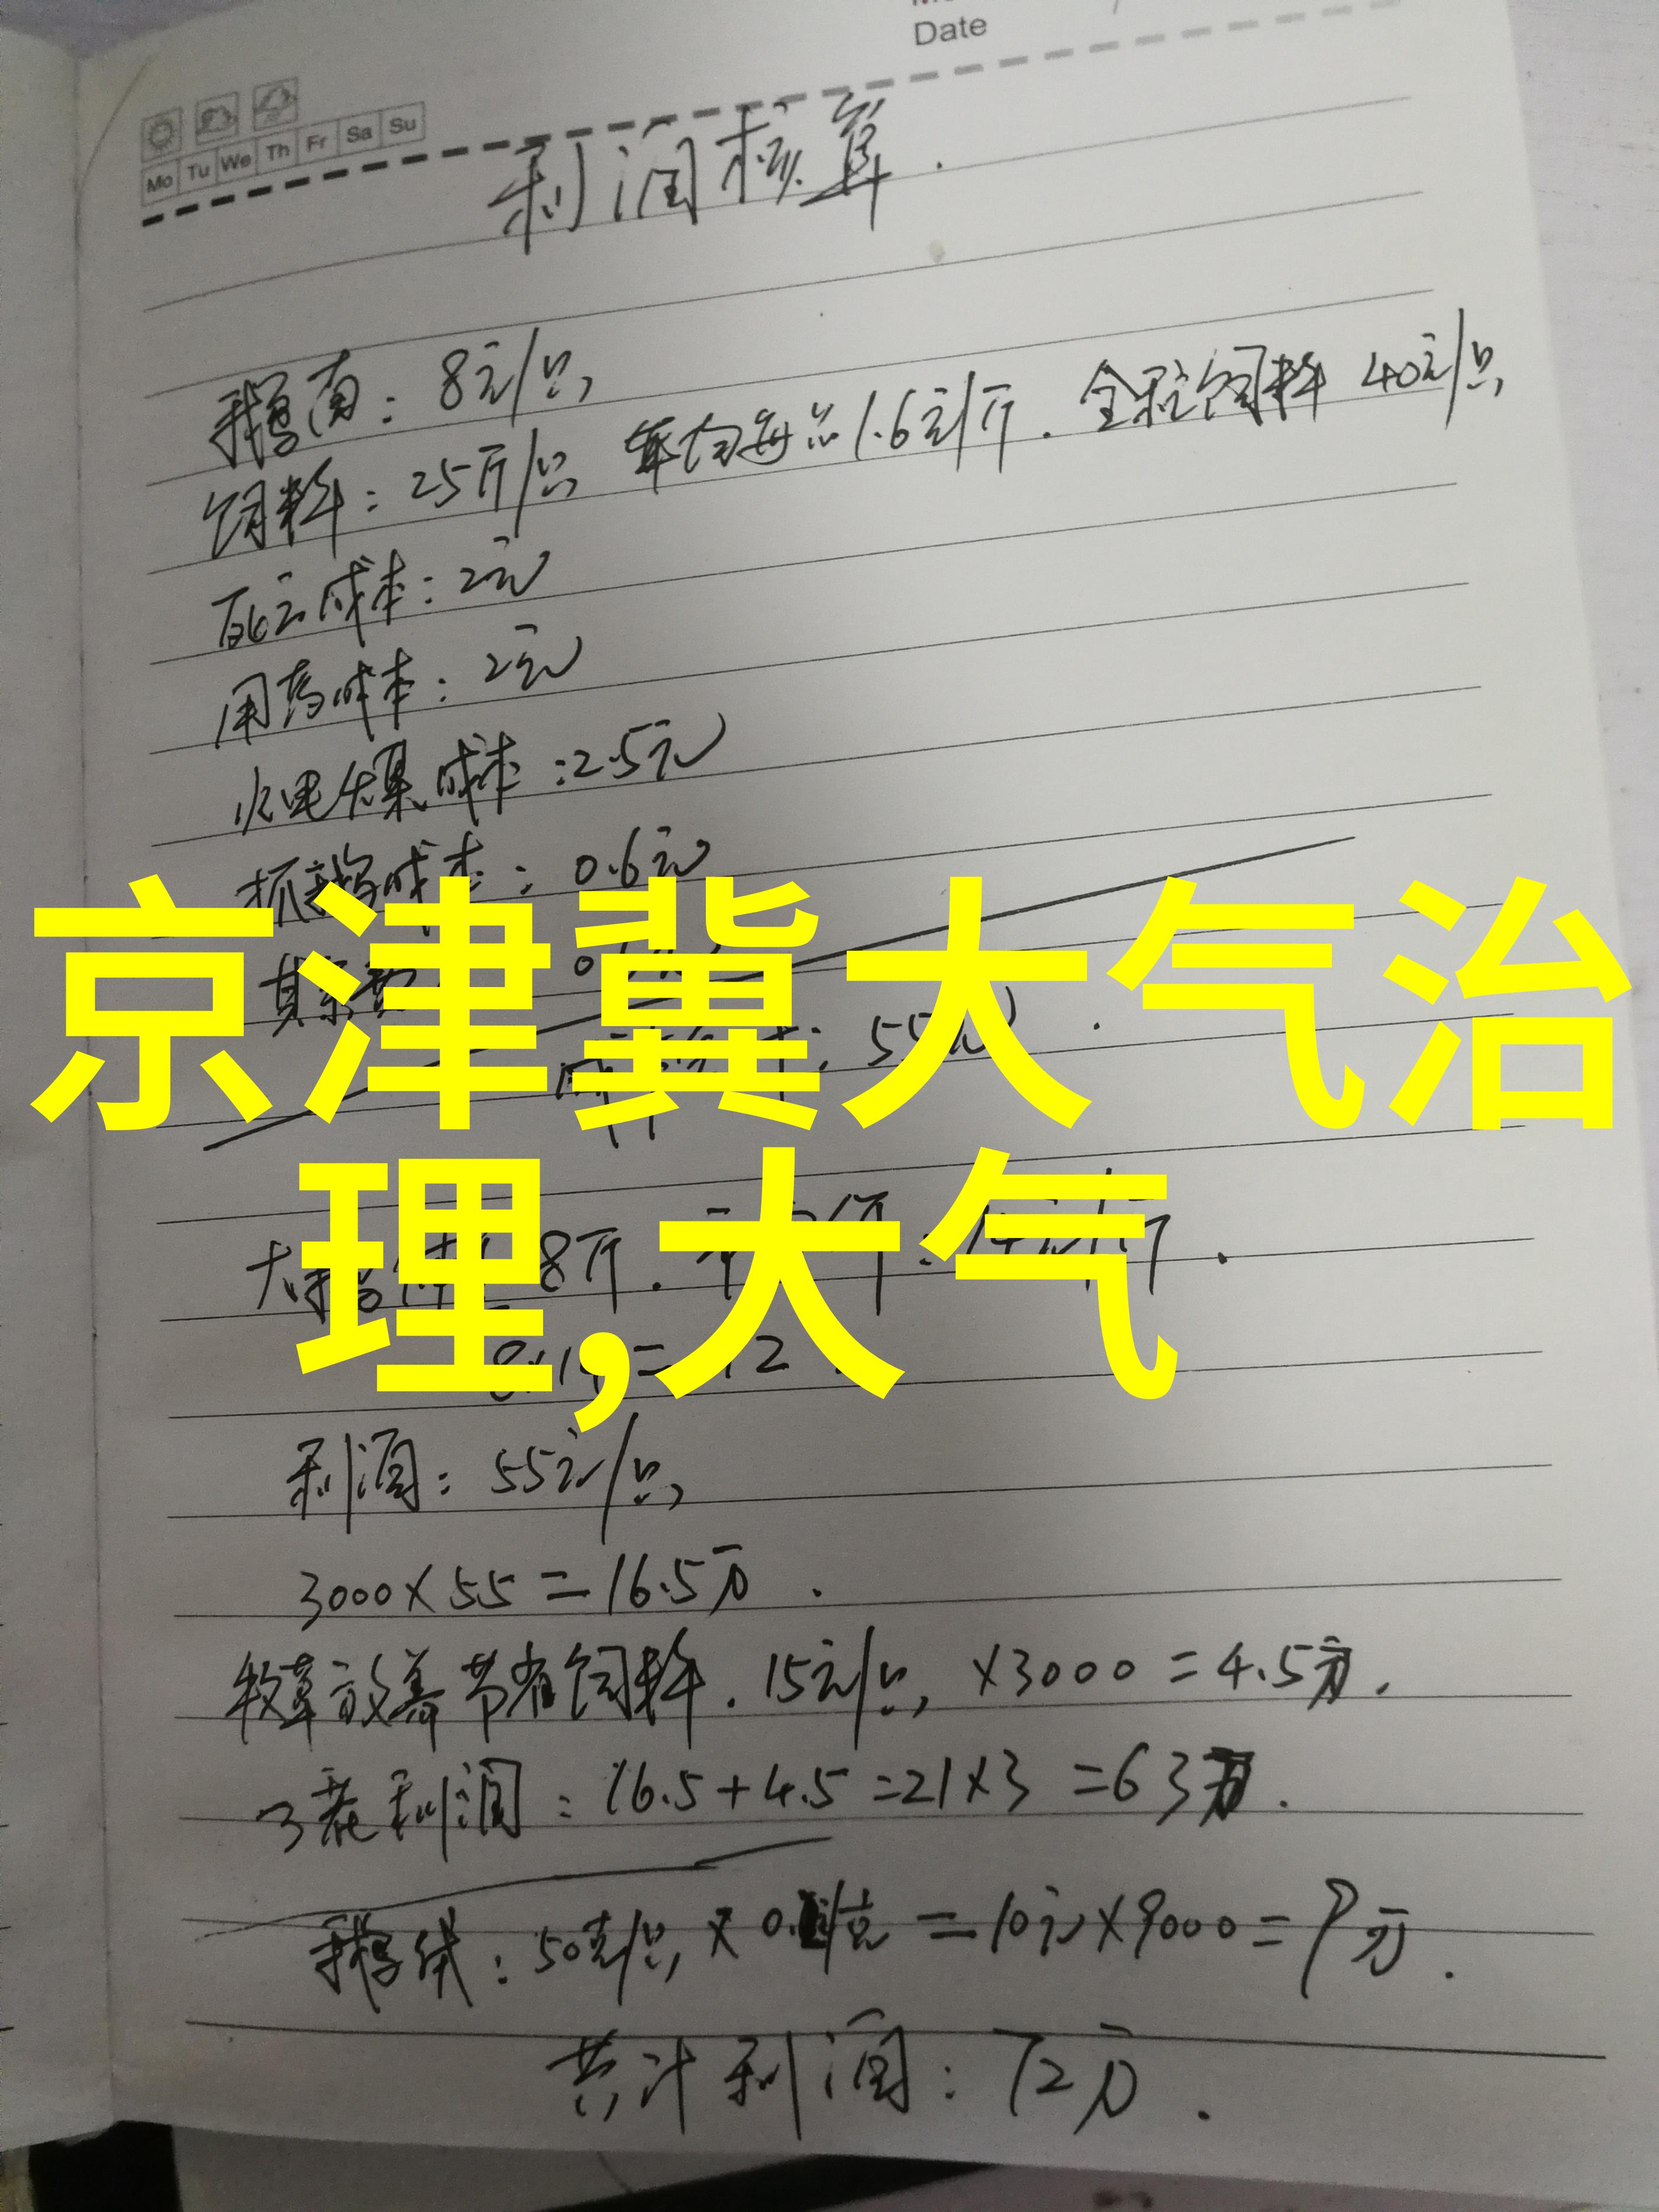 Date
Mo Tu We Th Fr Sa Su
利润核算.
鹅苗: 8元/只
饲料: 25斤/只 平均每斤1.6元/斤. 全程饲料 40元/只
死亡成本: 2元
用药成本: 2元
水电煤成本: 2.5元
抓鹅成本: 0.6元
京津冀大气治
理,大气
利润: 55元/只
3000×55=16.5万.
牧草放养节省饲料. 15元/只, ×3000=4.5万.
3茬利润: 16.5+4.5=21×3=63万.
鹅绒: 50克/只 × 0. /克 =10元×9000=9万.
共计利润: 72万.